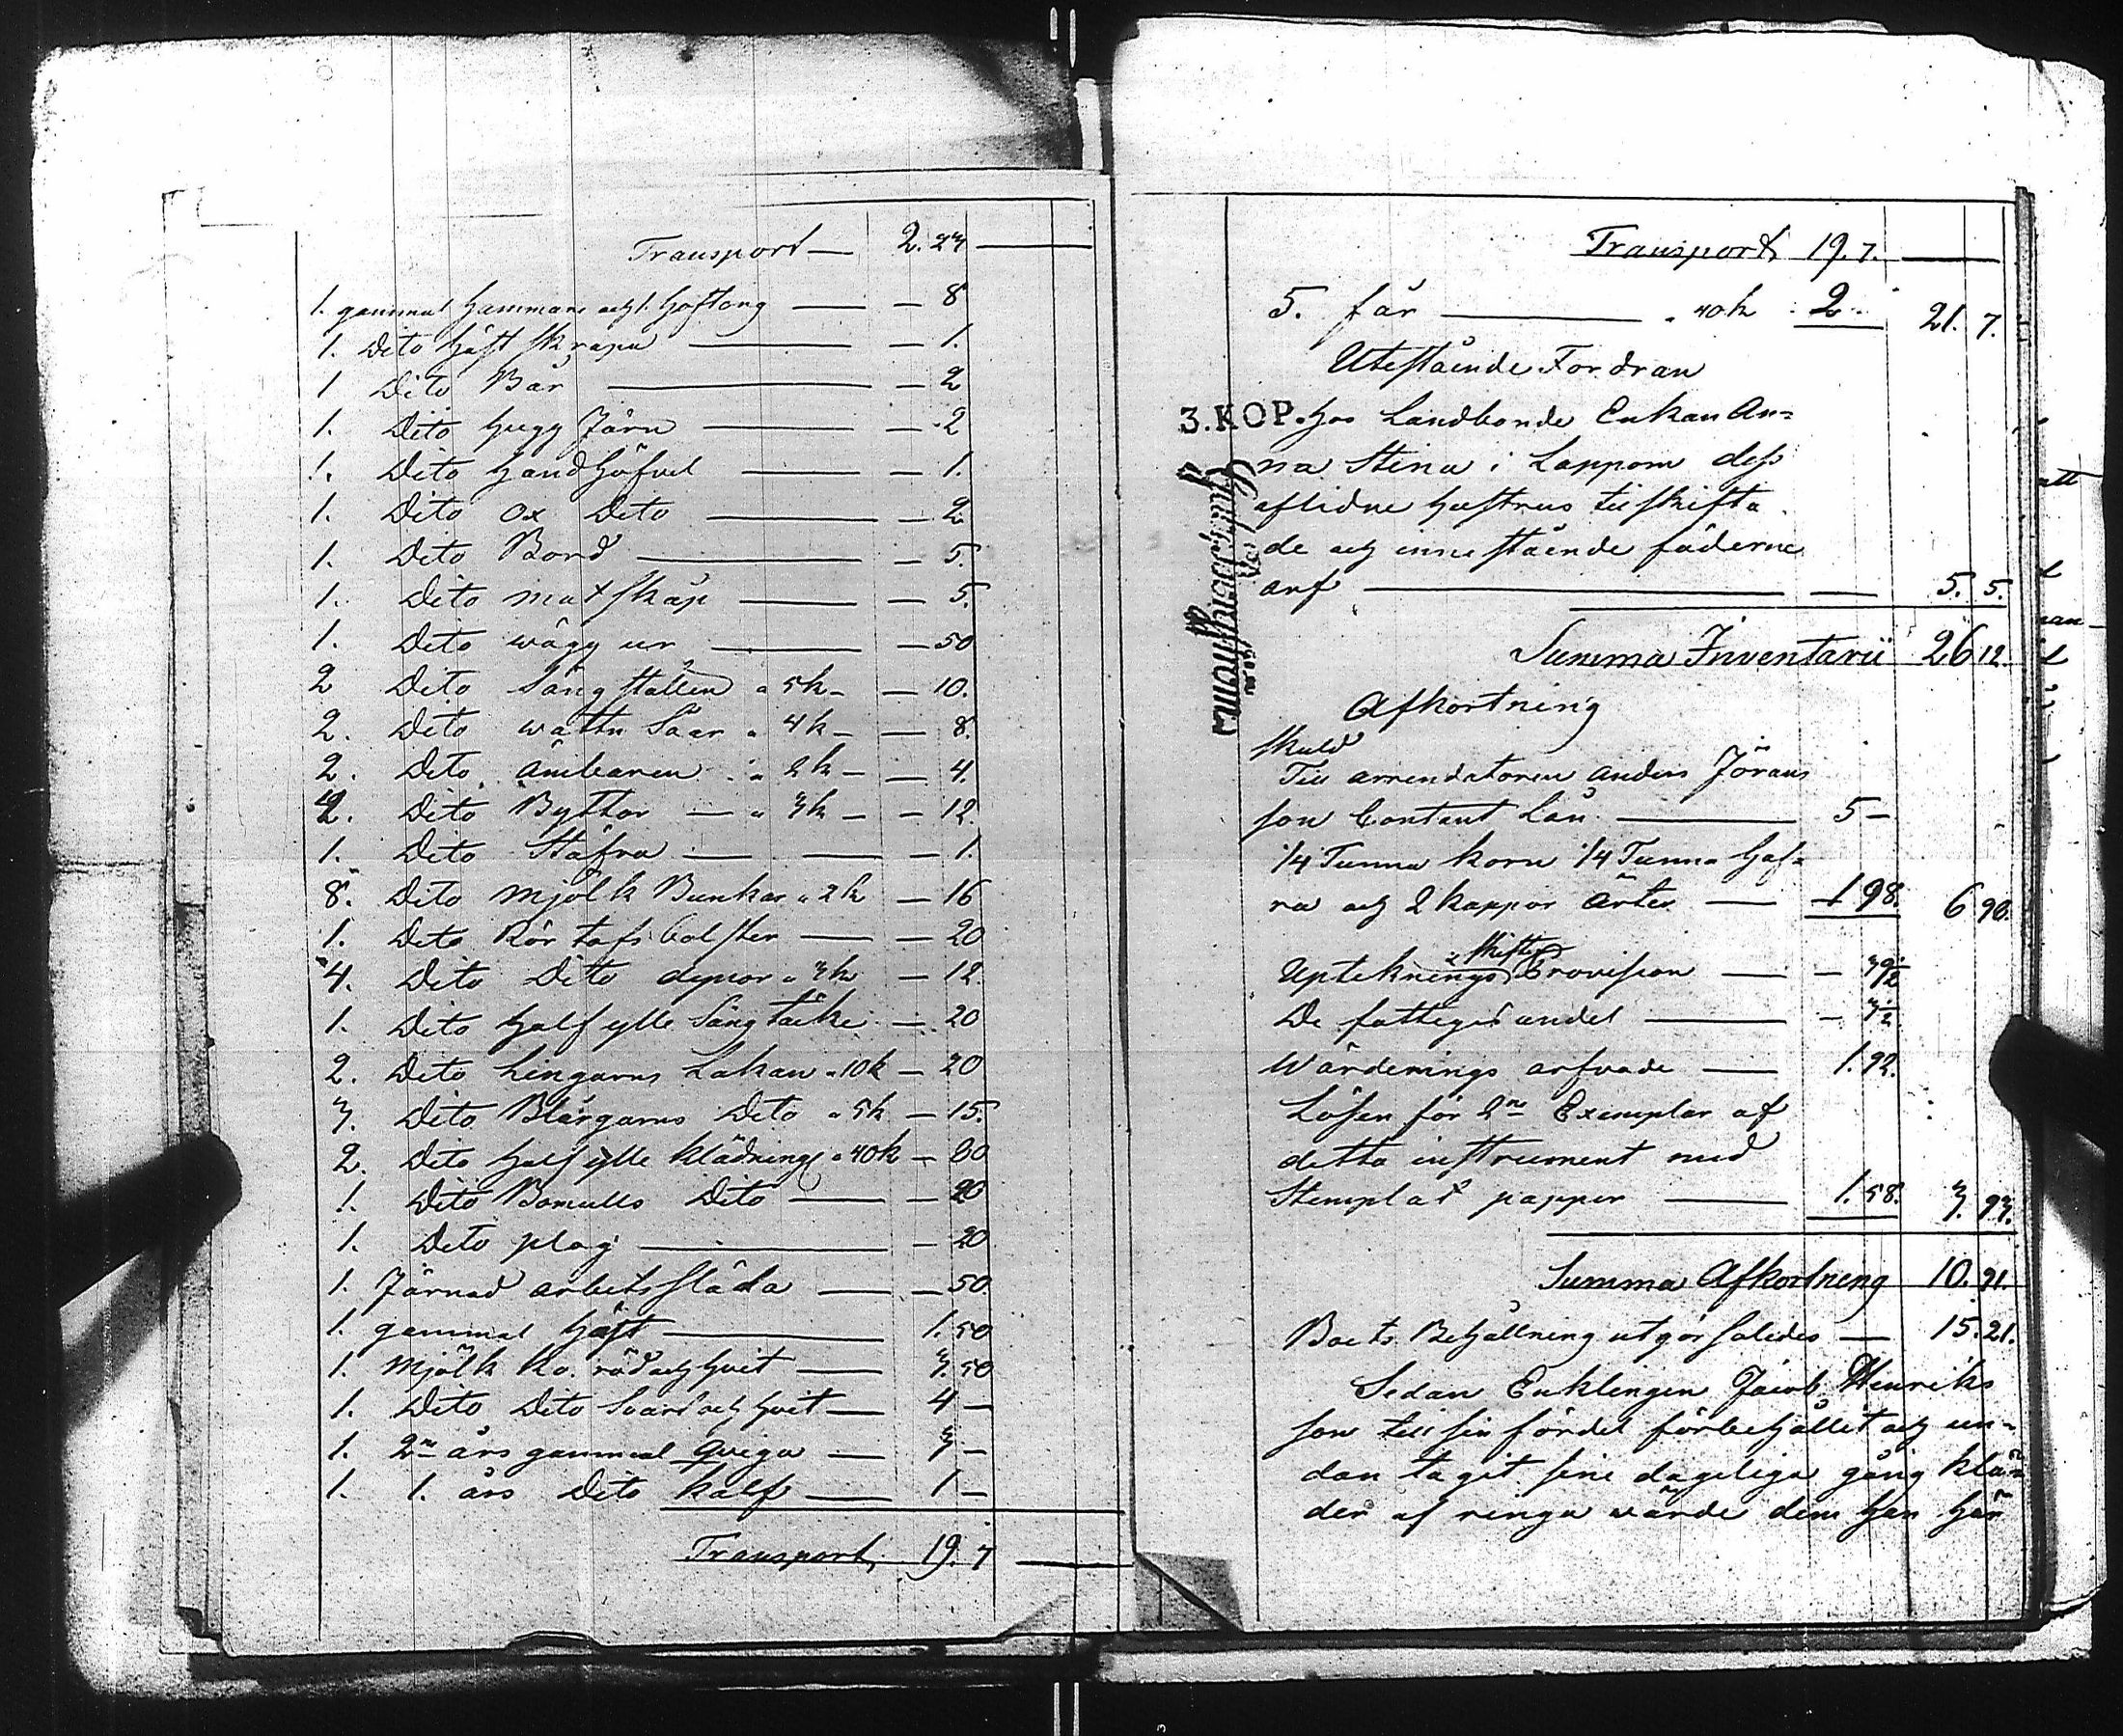 Transport — 2. 23
1. gammal Hammare och 1. Hoftong — — 8
1. Dito Häst skrapa — — 1.
1 Dito Bår — — 2
1. Dito Hugg Järn — — 2
1. Dito Handhöfvel — — 1.
1. Dito Ox Dito — — 2
1. Dito Bord — — 5.
1. Dito matskåp — — 5.
1. Dito wägg ur — — 50
2 Dito Sängställen a 5k — — 10.
2. Dito wattn Såar a 4k — — 8.
2. Dito Ämbaren a 2k — — 4.
4. Dito Byttor — a 3k — — 12.
1. Dito Stäfva — — — 1.
8. Dito Mjölk Bunkar a 2k — 16
1. Dito Rörtafs bolster — — 20
4. Dito Dito dynor a 3k — 12.
1. Dito Half ylle Sängtäcke — 20
2. Dito Lingarns Lakan a 10k — 20
3. Dito Blårgarns Dito a 5k — 15.
2. Dito Half ylle klädning a 40k — 80
1. Dito Bomulls Dito — — 20
1. Dito plog — — 20
1. Järnad arbetssläda — — 50.
1. gammal Häst — 1. 50
1. Mjölk ko. röd och hvit — 3. 50
1. Dito Dito Svart och hvit — 4 —
1. 2ne års gammal qviga — 3 —
1. 1. års Dito kalf — 1 —
Transport 19. 7
Transport 19. 7.
5. får — a 40k 2. 21. 7.
Utestående Fordran
3. KOP.
Hos Landbonde Enkan An=
na Stina i Lappom dess
aflidne Hustrus tillskifta
de och innestående fäderne
arf — — 5. 5.
Summa Inventarii 26 12.
Afkortning
Skuld
Till arrendatoren Anders Jörans
son Contant Lån — 5 —
1/4 Tunna korn 1/4 Tunna Haf=
ra och 2 kappor Ärter — 1 98. 6 98.
skiftes
Upteknings Provision — —
De fattiges andel — —
Wärderings arfvode — 1. 92.
Lösen för 2ne Exemplar af
detta instrument med
Stemplat papper — 1. 58. 3. 93.
Summa Afkortning 10. 91.
Boets Behållning utgör Således — 15. 21.
Sedan Enklingen Jacob Henriks
son till sin fördel förbehållit och un=
dan tagit sine dageliga gång klä=
der af ringa värde dem han här